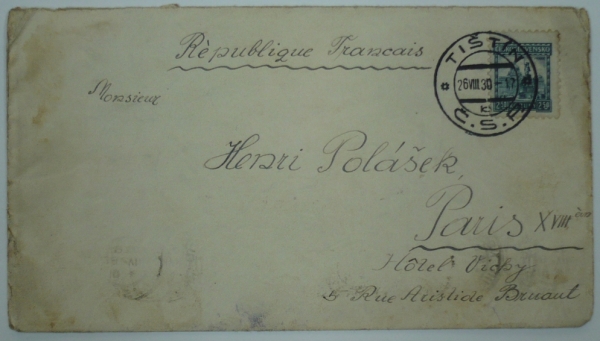 Rèpublique Francais
TIŠTÍN
26.VIII.30.-17
Č.S.R.
Monsieur
Henri Polášek,
Paris XVIII ème
Hôtel Vichy
5 Rue Aristide Bruant